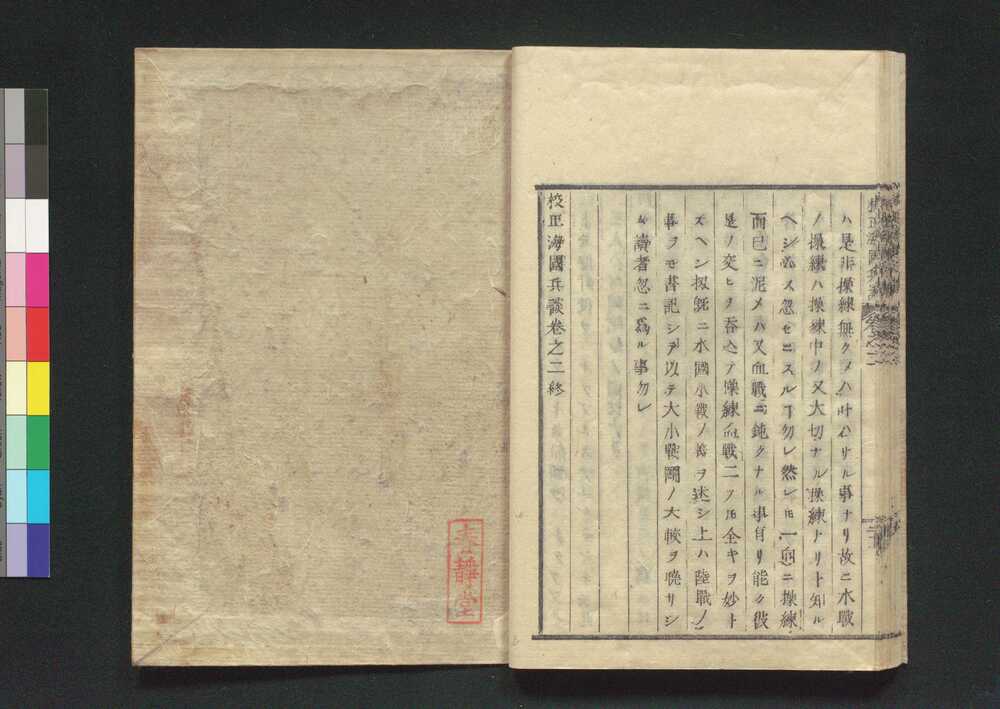 ハ是非操練無クメハ叶ハサル事ナリ故ニ水戰
ノ操練ハ操練中ノ又大切ナル操練ナリト知ル
ヘシ必ス忽セニスルヿ勿レ然レ𪜈一向ニ操練
而已ニ泥メハ又血戰ニ鈍クナル事有リ能ク彼
是ノ交ヒヲ吞込テ操練血戰二ツ𪜈全キヲ妙ト
スヘシ扨既ニ水國水戰ノ
ヲ述シ上ハ陸戰ノ
ヲモ書記シテ以テ大小戰鬪ノ大較ヲ曉サシ
ム讀者忽ニ爲ル事勿レ
校正海國兵談卷之二終
校正海國兵談
卷之二
靜堂